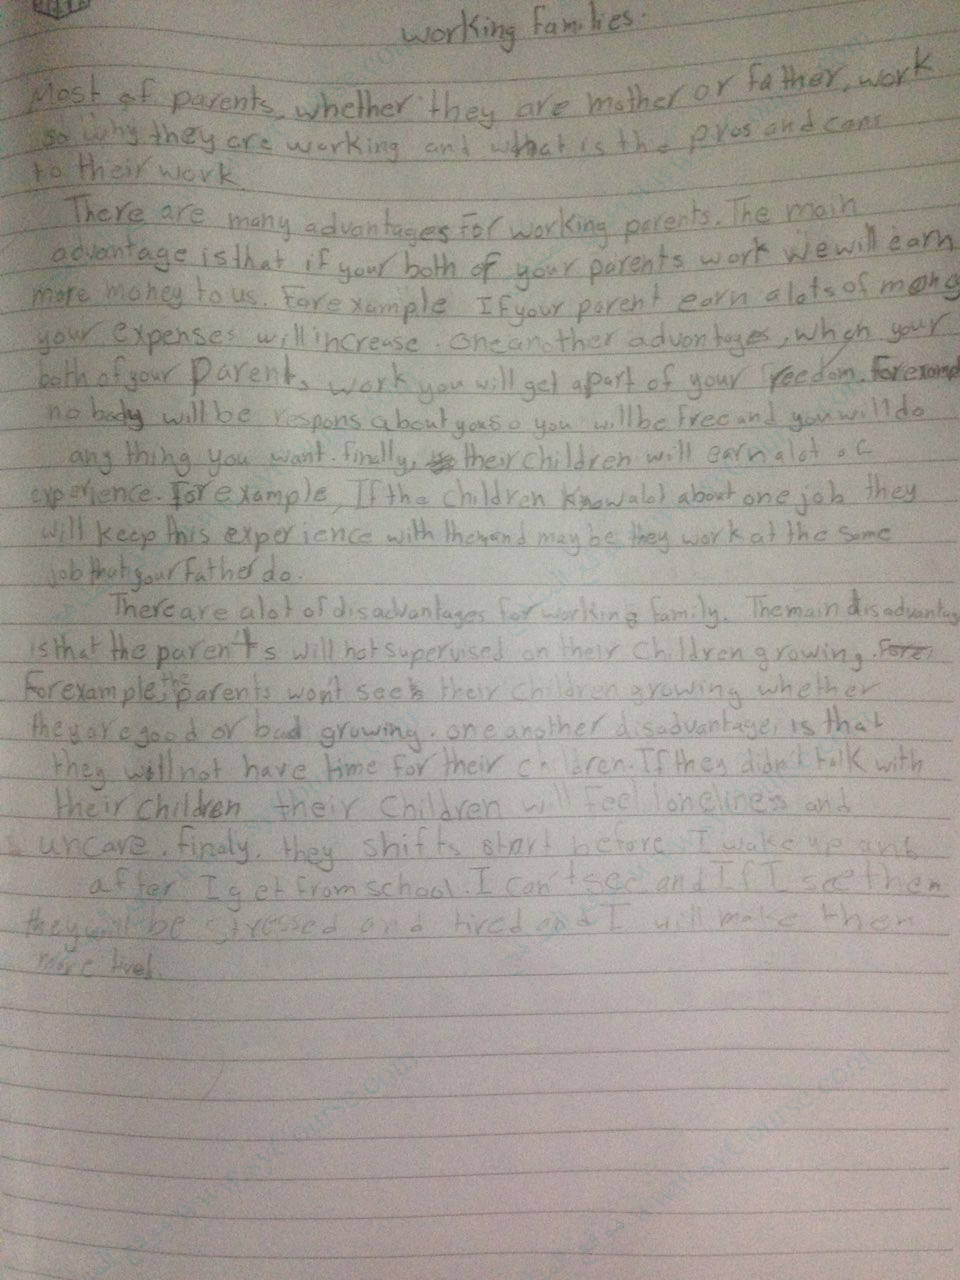 working families.
Most of parents, whether they are mother or father, work
so why they are working and what is the pros and cons
to their work
There are many advantages for working parents. The main
advantage is that if your both of your parents work we will earn
more money to us. For example If your parent earn a lots of mony
your expenses will increase. One another advantages, when your
both of your Parents work you will get apart of your freedom. For exampl
no body will be respons about you so you will be free and you will do
any thing you want. finally, their children will earn alot of
experience. For example, If the children know alot about one job they
will keep this experience with them and may be they work at the same
job that your father do.
There are a lot of disadvantages for working family. The main disadvantag
is that the parent's will not supervised on their Children growing. Fore
For example, the parents won't seek their children growing whether
they are good or bad growing. one another disadvantage, is that
they will not have time for their children. If they didn't talk with
their children their Children will feel loneliness and
uncare. finaly, they shifts start before I wake up and
after I get from school. I can't see and If I see them
they will be stressed and tired and I will make them
more tired.
www.